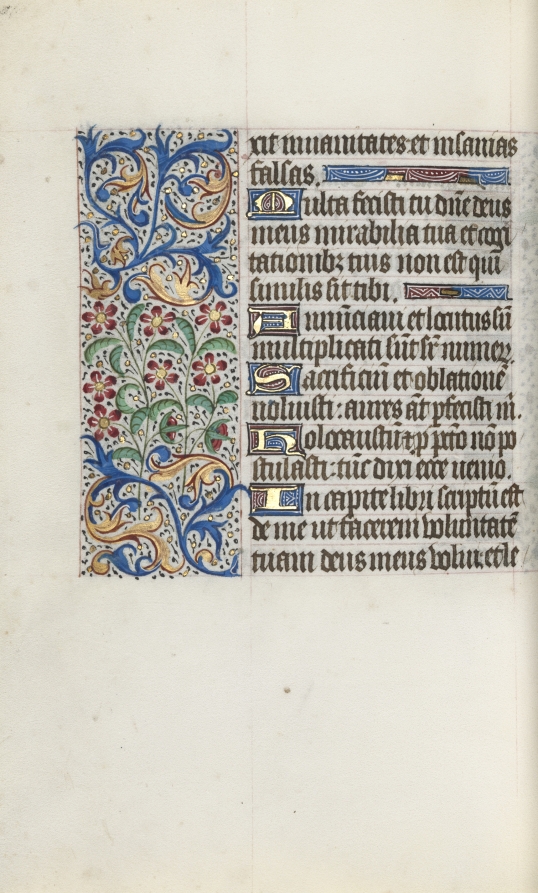 xit in uanitates et insanias
falsas.
Multa fecisti tu dn̄e deus
meus mirabilia tua et cogi
tationibꝫ tuis non est qui
similis sit tibi.
Annūciaui et locutus sū
multiplicati sūt sr̄ numeꝝ
Sacrificiū et oblationē
noluisti: aures āt ꝑfecisti m̄.
Holocaustū ⁊ ꝑ pctō nō po
stulasti: tūc dixi ecce uenio.
In capite libri scriptū est
de me ut facerem voluntatē
tuam deus meus volui: et le